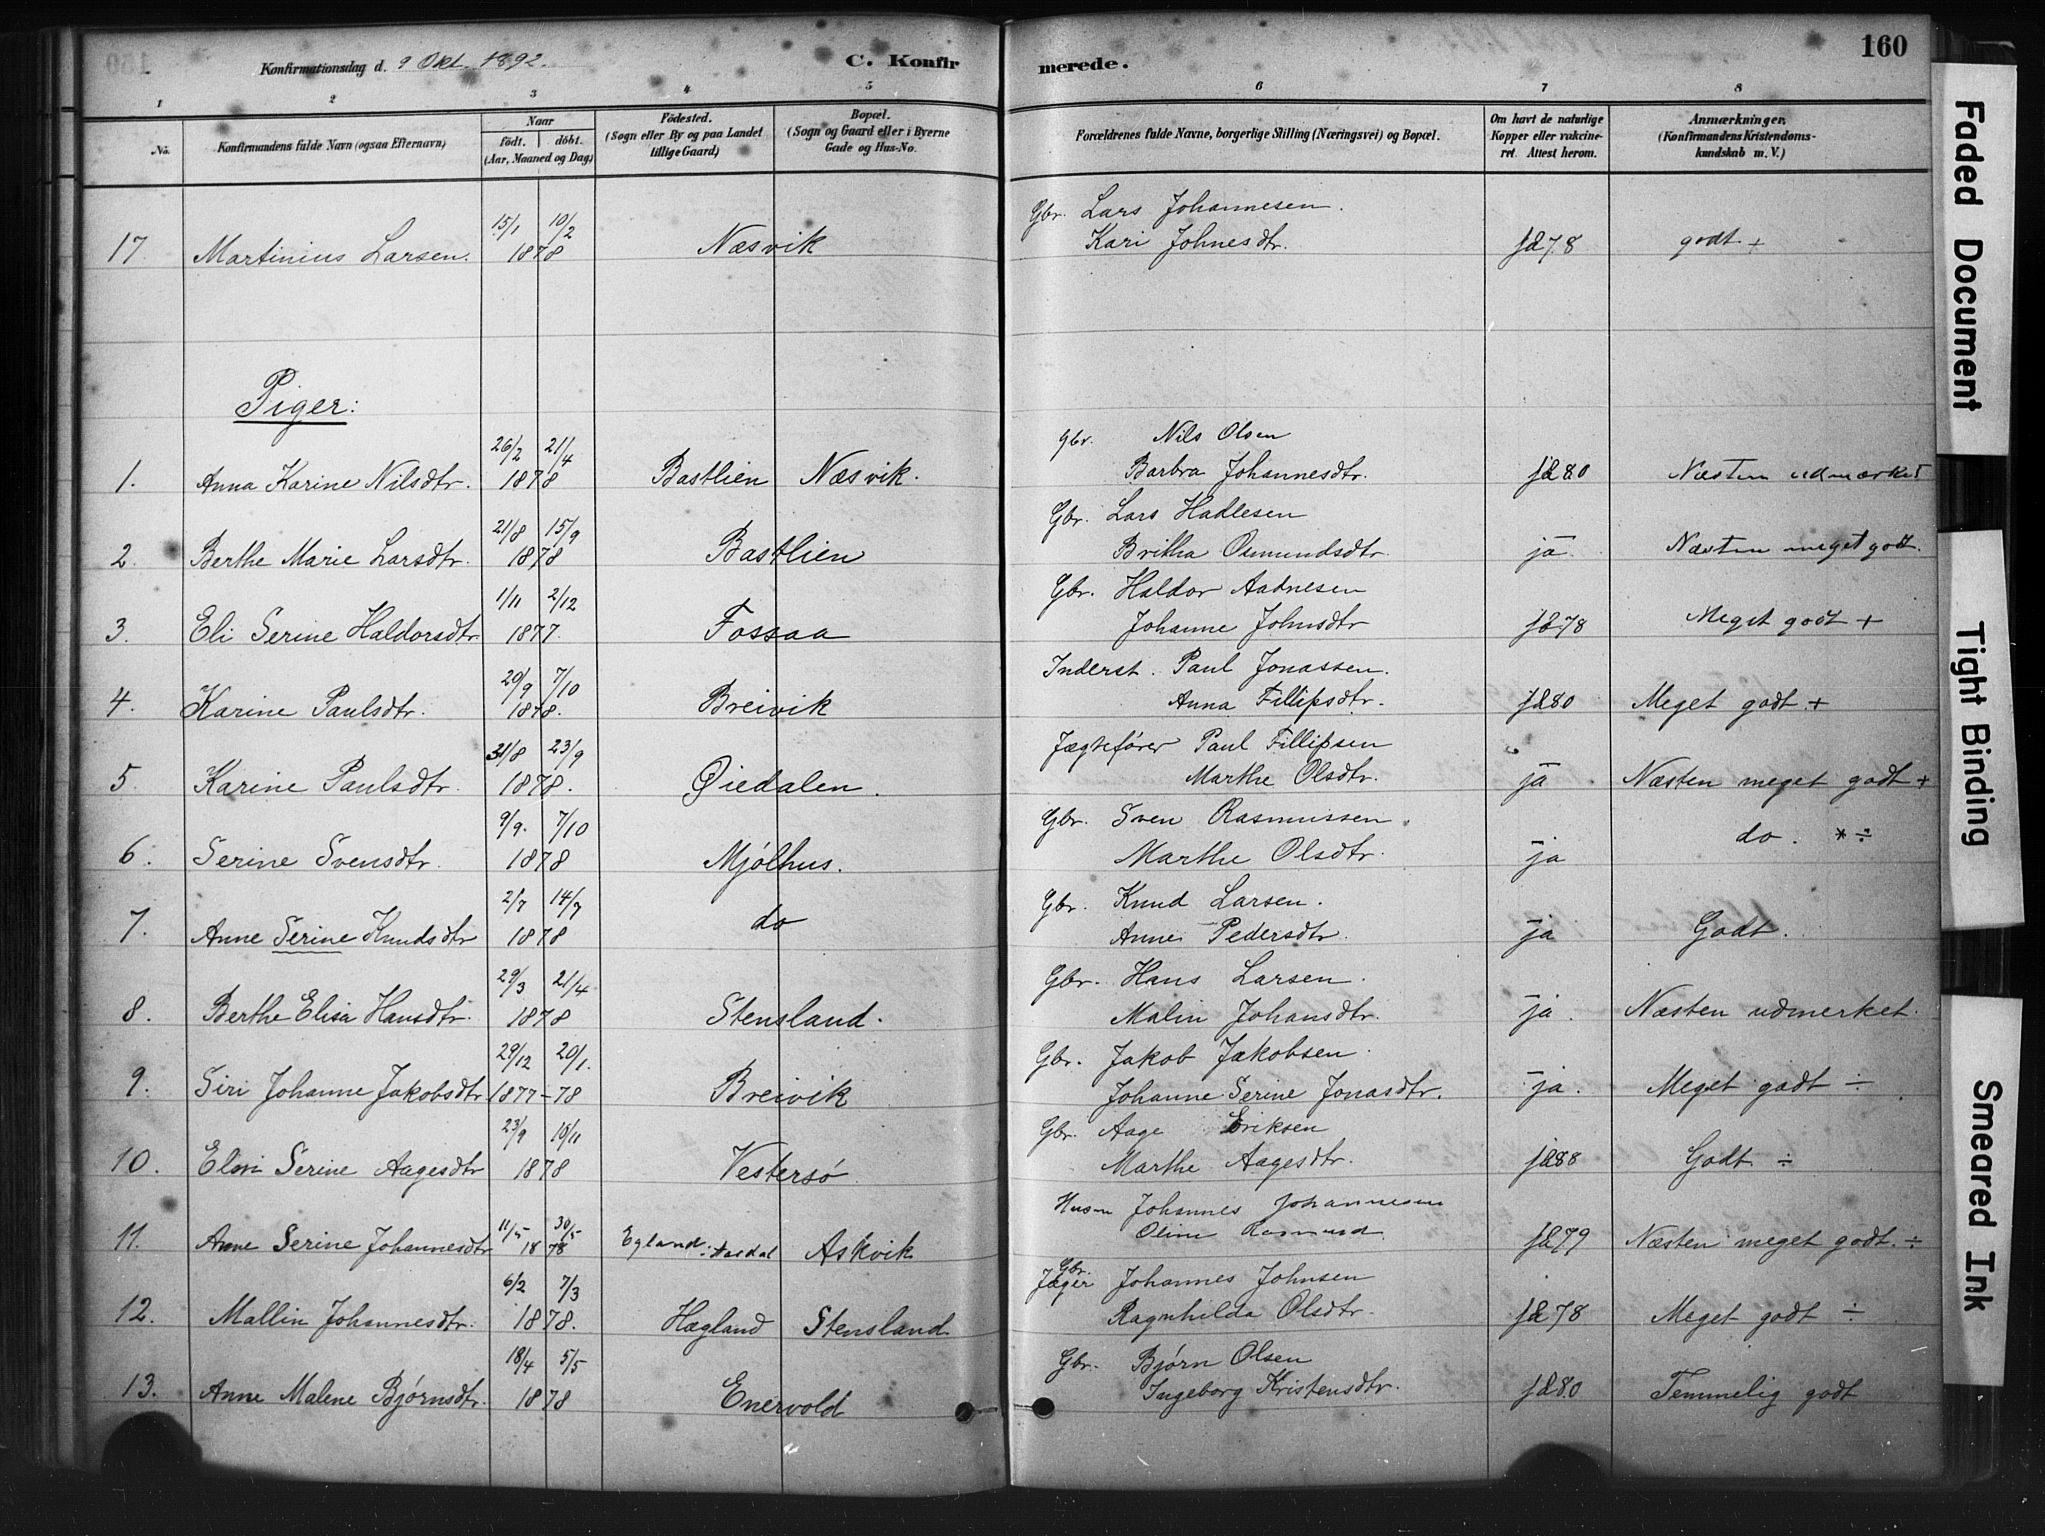 160
Konfirmationsdag d. 9 Okt. 1892. C. Konfirmerede.
1 2 3 4 5 6 7 8
No. Konfirmandens fulde Navn (ogsaa Efternavn) Naar født. døbt. (Aar, Maaned og Dag) Födested. (Sogn eller By og paa Landet tillige Gaard) Bopæl. (Sogn og Gaard eller i Byerne Gade og Hus-No. Forældrenes fulde Navne, borgerlige Stilling (Næringsvei) og Bopæl. Om havt de naturlige Kopper eller vakcineret. Attest herom. Anmærkninger. (Konfirmandens Kristendomskundskab m. V.)
15/1 10/2 Gbr. Lars Johannesen.
17. Martinius Larsen. 1878 Næsvik Kari Johnesdtr. ja 78 godt +
Piger:
26/2 21/4 gbr. Nils Olsen
1. Anna Karine Nilsdtr. 1878 Bastlien Næsvik. Barbra Johannesdtr. ja 80 Næsten udmærket
21/8 15/9 Gbr. Lars Hadlesen
2. Berthe Marie Larsdtr. 1878 Bastlien Britha Osmundsdtr. ja Næsten meget godt.
1/11 2/12 Gbr. Haldor Aadnesen
3. Eli Serine Haldorsdtr 1877 Fossaa Johanne Johnsdtr ja 78 Meget godt +
20/9 7/10 Inderst. Paul Jonassen.
4. Karine Paulsdtr. 1878. Breivik Anna Fillipsdtr. ja 80 Meget godt +
31/8 23/9 Jægtefører Paul Fillipsen
5 Karine Paulsdtr. 1878. Øiedalen. Marthe Olsdtr. ja Næsten meget godt +
9/9. 7/10 Gbr. Sven Rasmussen.
6. Serine Svensdtr. 1878 Mjølhus. Marthe Olsdtr. ja do. * ÷
2/7 14/7 Gbr. Knud Larsen.
7. Anne Serine Knudsdtr 1878 do Anne Pedersdtr. ja Godt.
29/3 21/4 Gbr. Hans Larsen.
8. Berthe Elisa Hansdtr. 1878 Stensland. Malin Johansdtr. ja. Næsten udmerket.
29/12 20/1. Gbr. Jakob Jakobsen.
9. Siri Johanne Jakobsdtr 1877-78 Breivik Johanne Serine Jonasdtr. ja. Meget godt ÷
23/9 10/11 Gbr. Aage Eriksen
10. Elovi Serine Aagesdtr 1878 Vestersø Marthe Aagesdtr. ja 88 Godt ÷
11/5 30/5 Husm Johannes Johannesen
11. Anne Serine Johannesdtr 1878 Egland i Aardal Askvik Oline ja 79 Næsten meget godt. ÷
6/2 7/3 Gbr. Jæger Johannes Johnsen
12. Mallin Johannesdtr. 1878. Hægland Stensland Ragnhilda Olsdtr. ja 78 Meget godt ÷
18/4 5/5 Gbr. Bjørn Olsen
13. Anne Malene Bjørnsdtr. 1878 Enervold Ingeborg Kristensdtr. ja 80 Temmelig godt
Faded Document
Tight Binding
Smeared Ink